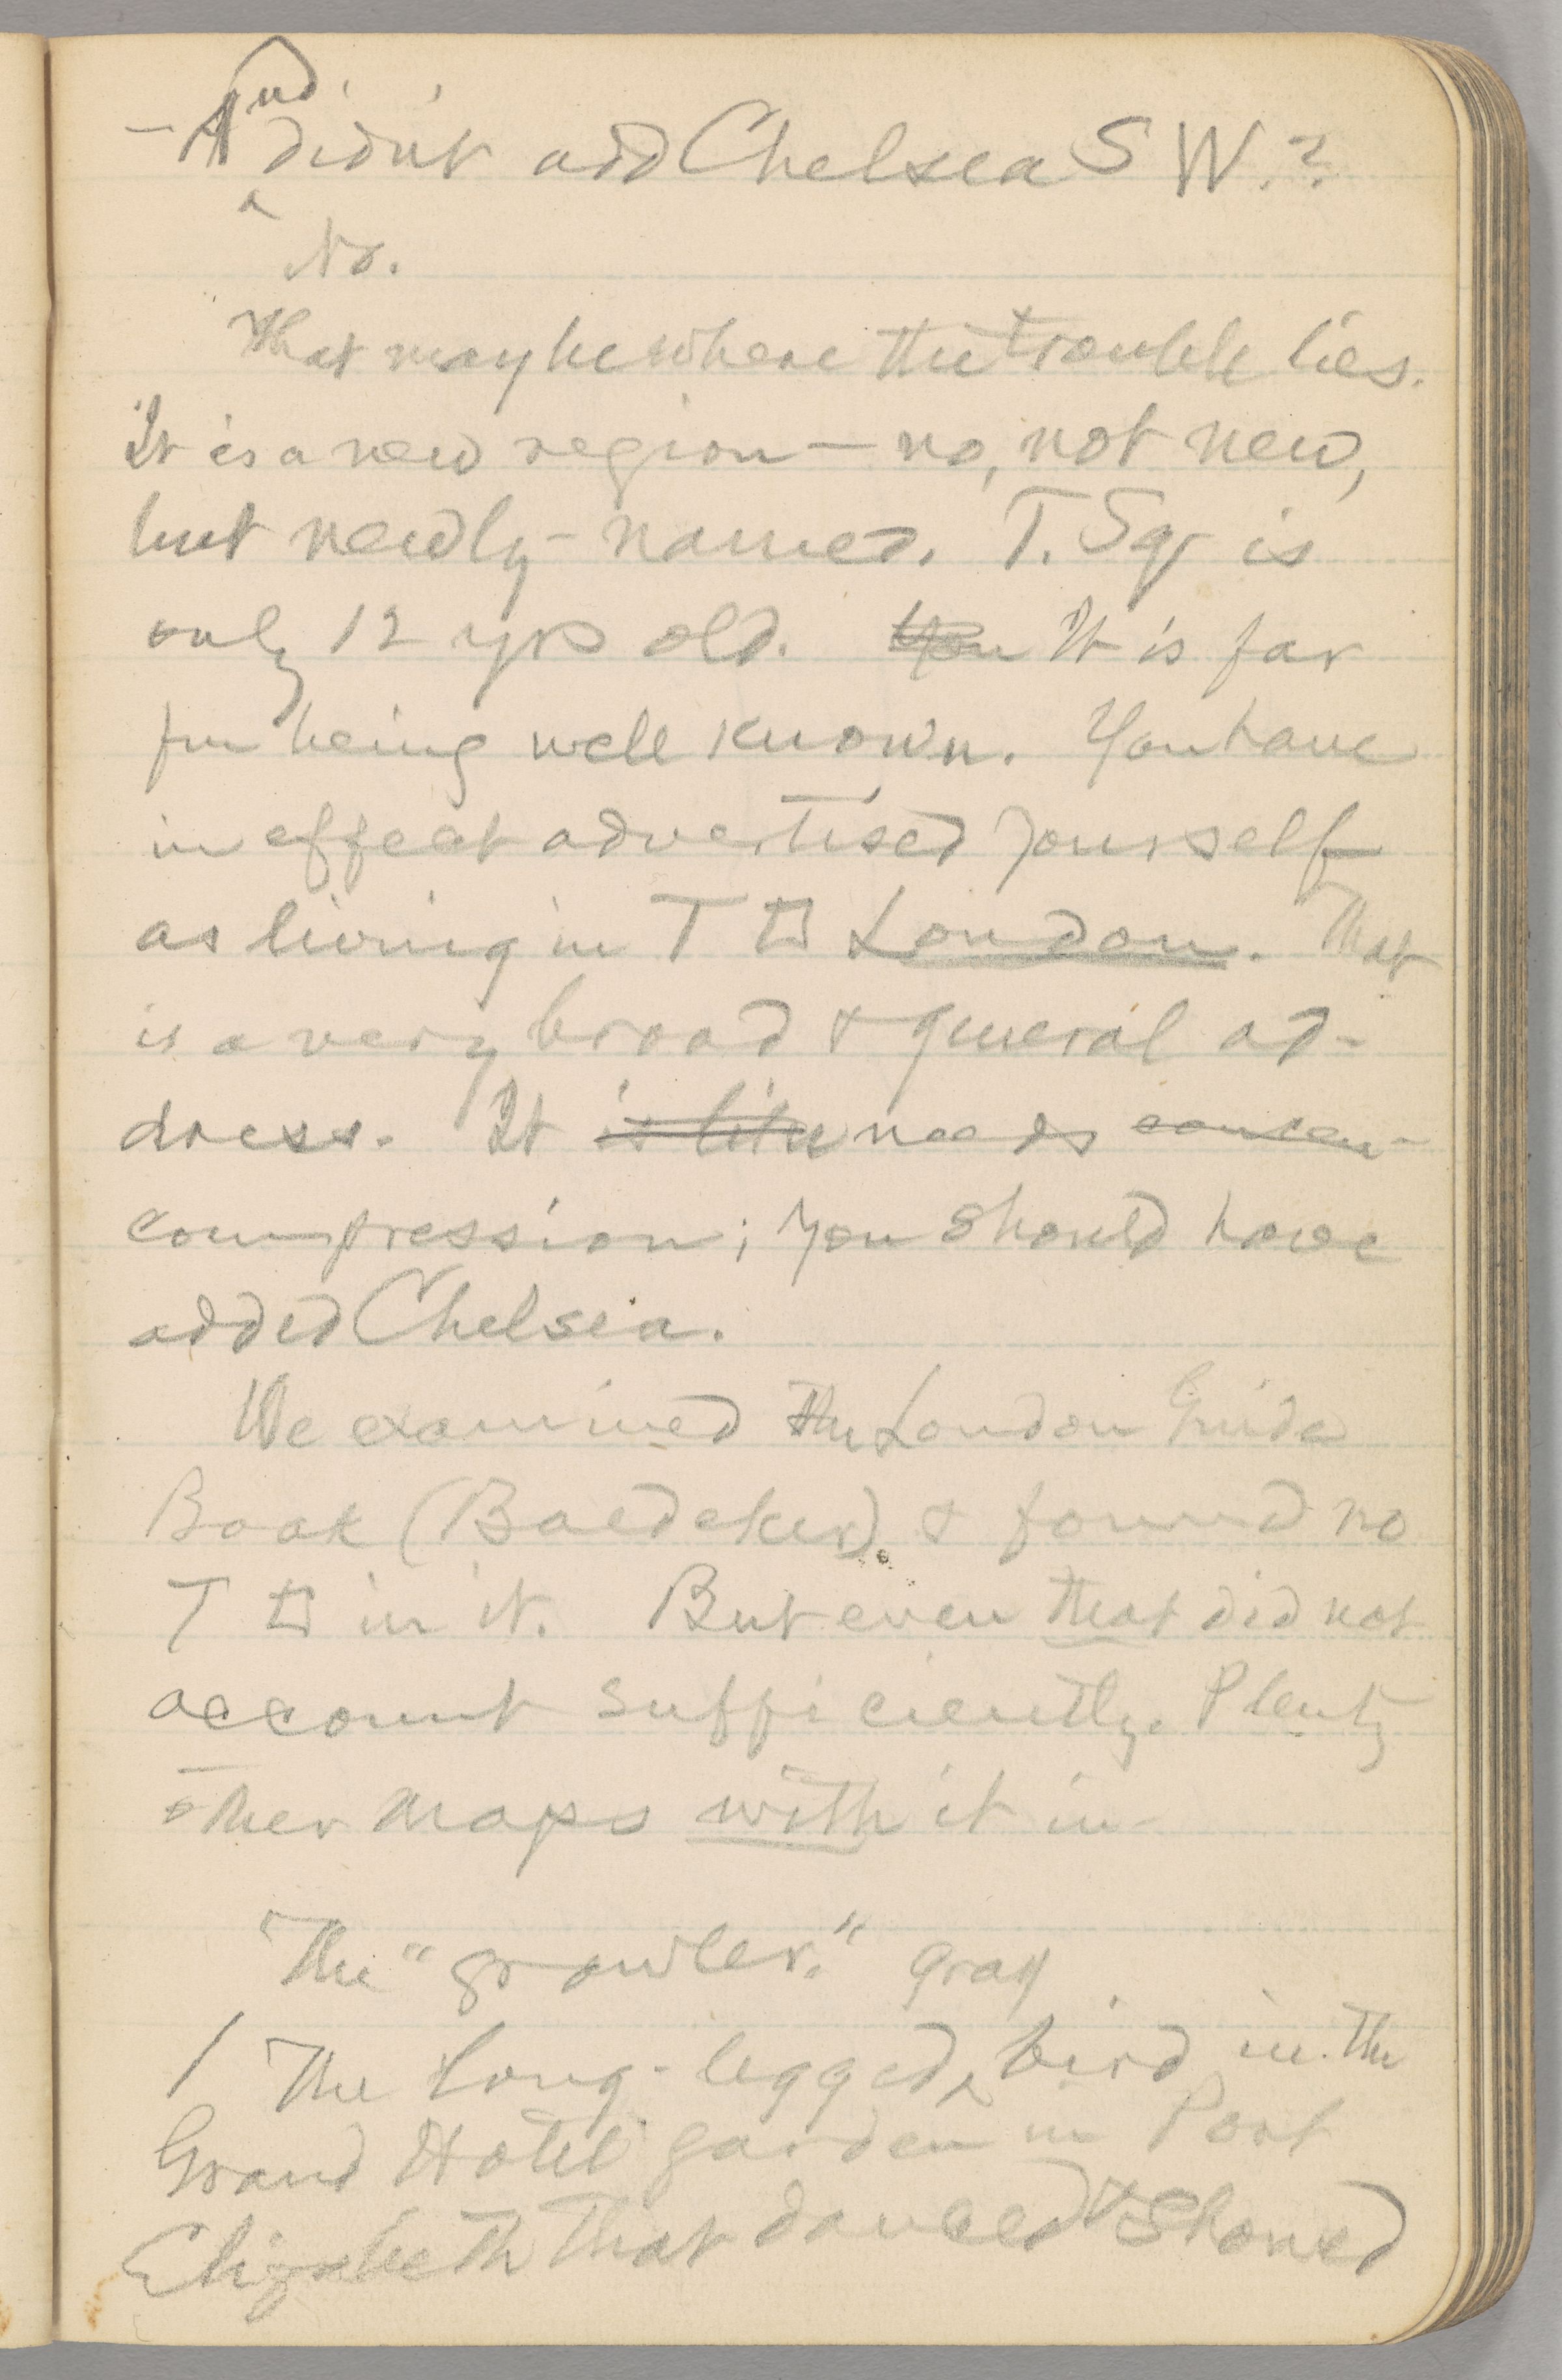 - And didn't add Chelsea S W.?
No.
That may be where the trouble lies.
It is a new region — no, not new,
but newly-named. T. Sq is
only 12 yrs old. You It is far
fm being well known. You have
in effect advertised yourself
as living in T □ London. That
is a very broad & general ad-
dress. It is like needs concen-
compression; you should have
added Chelsea.
We examined the London Guide
Book (Baedeker). & found no
T □ in it. But even that did not
account sufficiently. Plenty
other maps with it in.
The "growler." gray
/ The long-legged ‸ bird in the
Grand Hotel garden in Port
Elizabeth that danced & showed